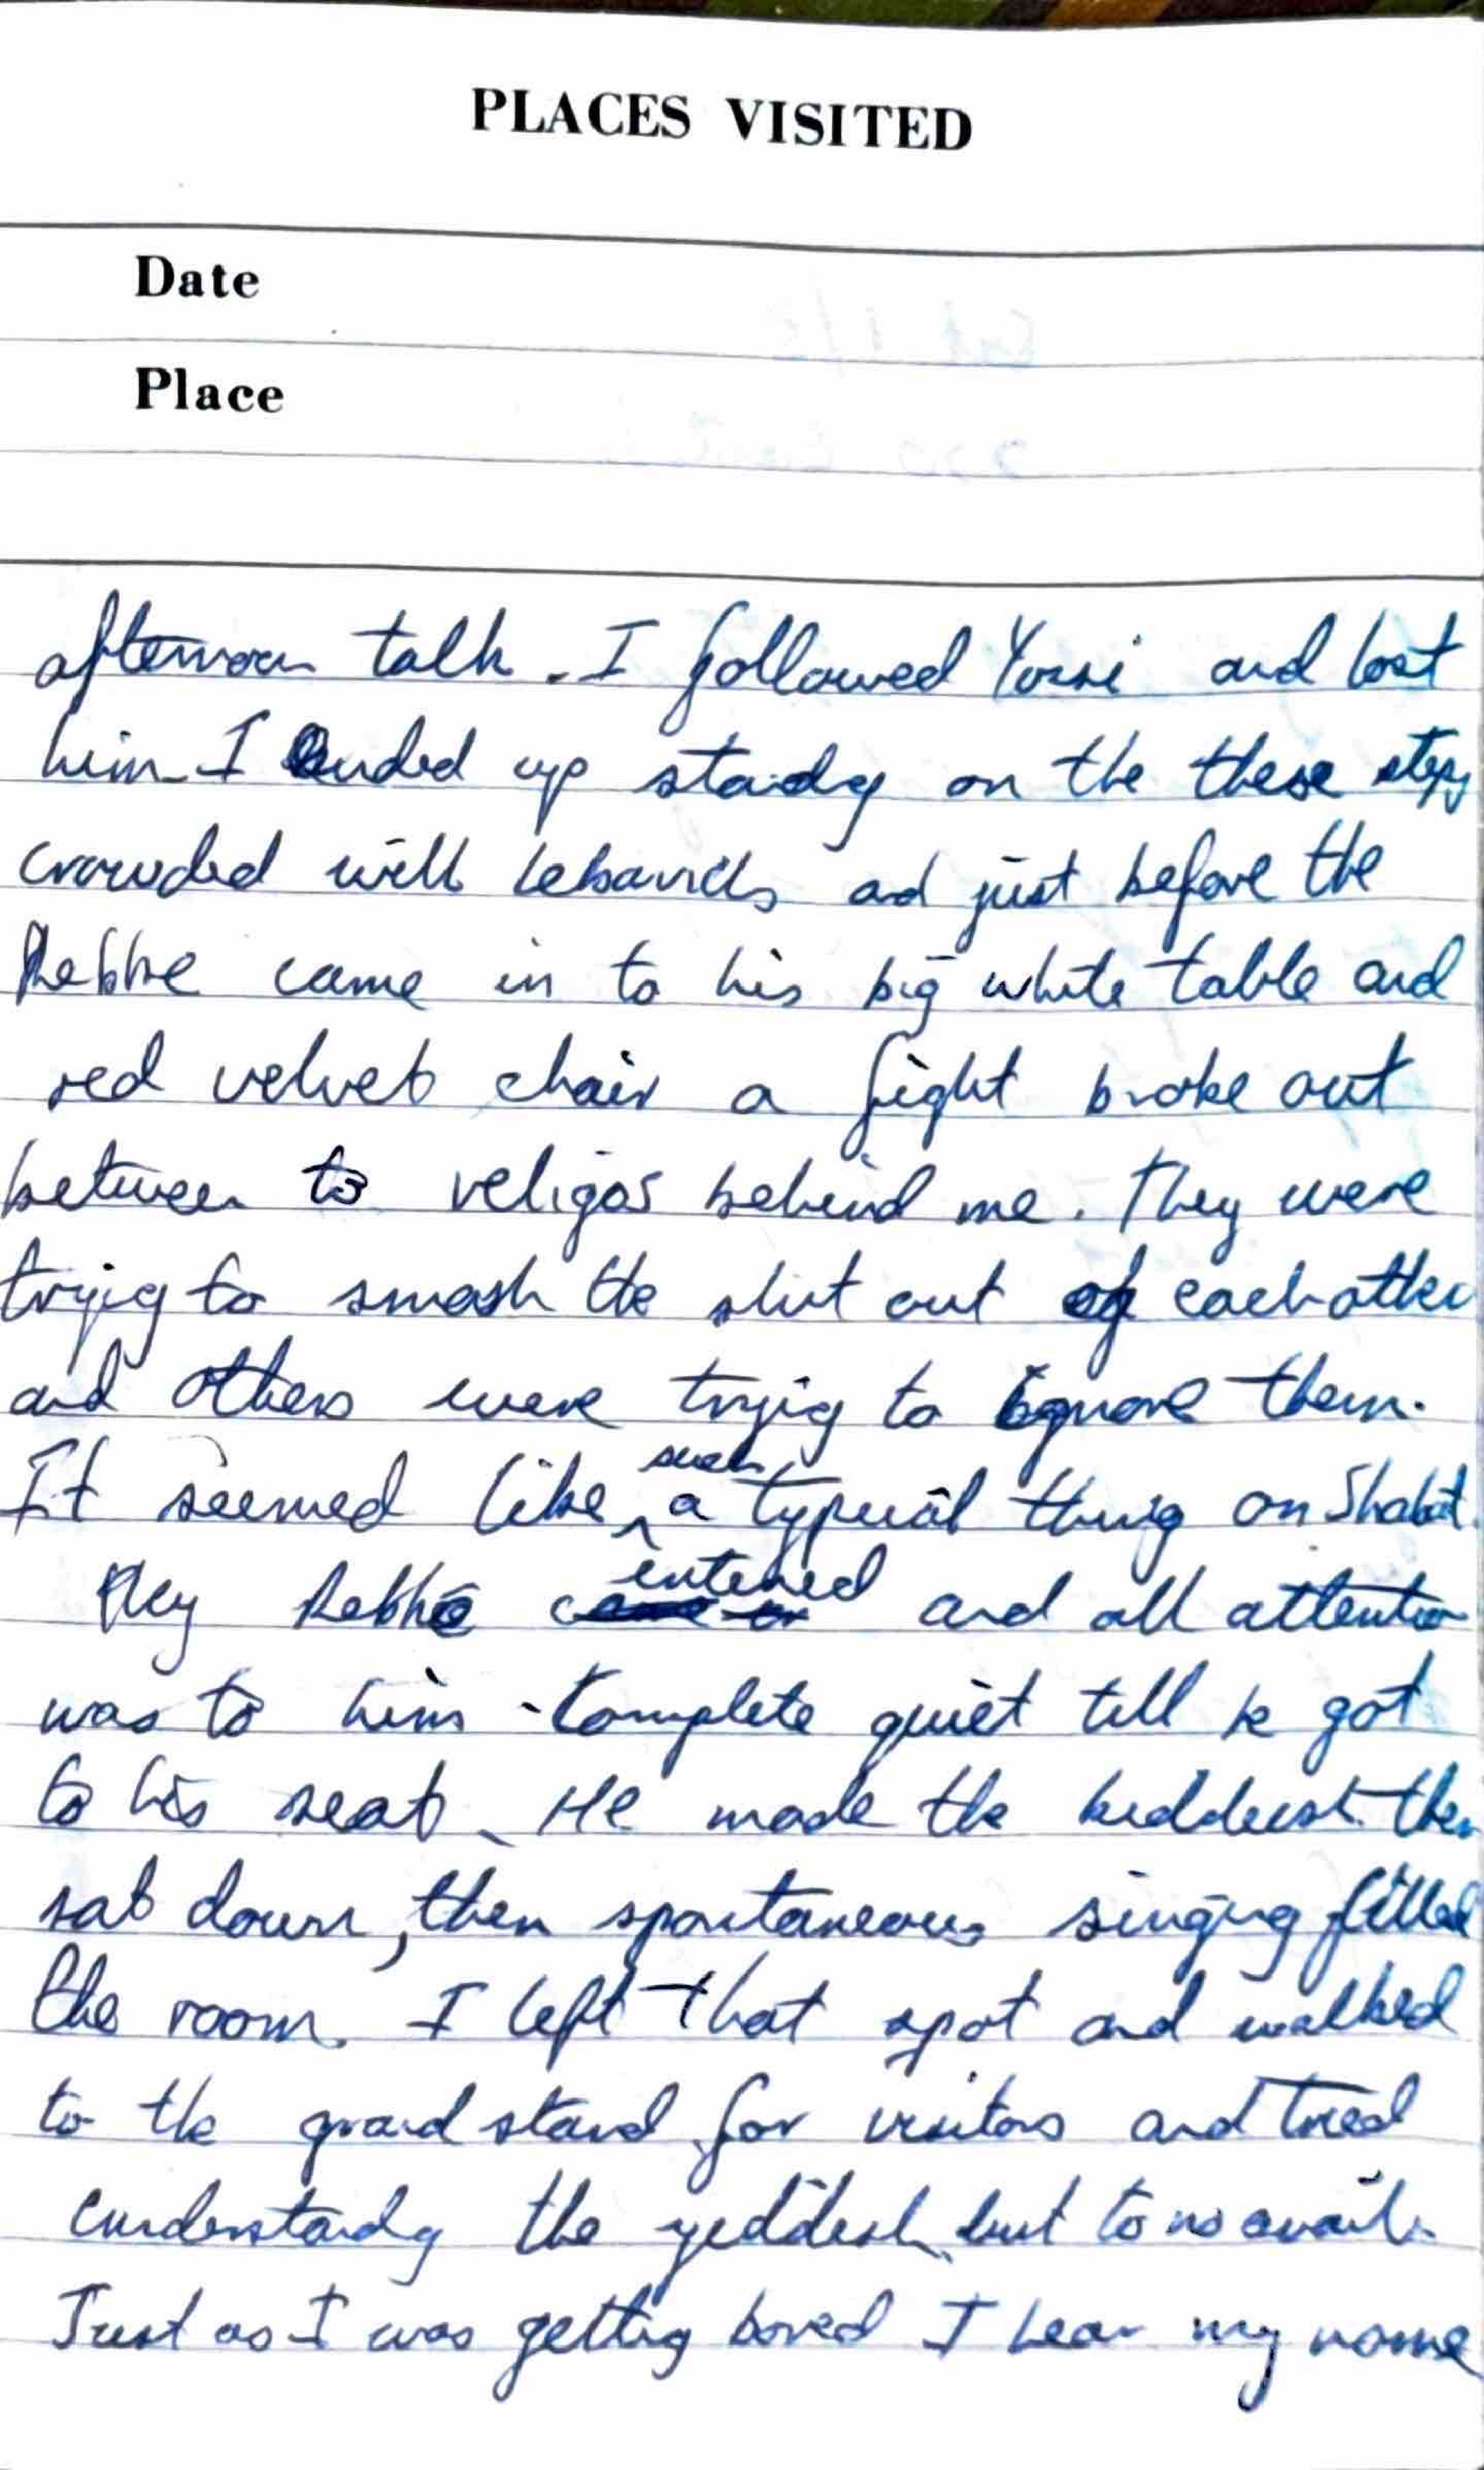 PLACES VISITED
Date
Place
afternoon talk. I followed Yossi and lost
him. I ended up standg on the these steps
crowded with Lebavichs and just before the
Rebbe came in to his big white table and
red velvet chair a fight broke out
between to religos behind me. They were
tryig to smash the shit out of each other
and others were tryig to ignore them.
It seemed like such a typical thing on Shabat.
They Rebbe entered and all attention
was to him - Complete quiet till he got
to his seat. He made the kiddush then
sat down, then spontaneous singing filled
the room. I left that spot and walked
to the grand stand for visitors and tried
understandg the yiddish but to no avail.
Just as I was gettig bored I hear my name